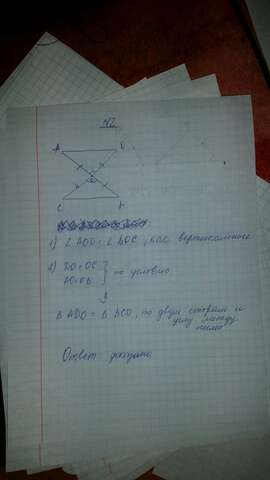 №2
A D
O
C B
1) ∠AOD = ∠BOC, как вертикальные
2) DO = OC } по условию
AO = OB
⇓
Δ ADO = Δ BCO, по двум сторам и
углу между
ними
Ответ доказано